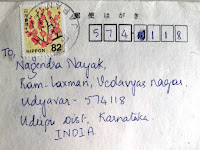 郵便はがき
NIPPON 82
574118
To,
Nagendra Nayak,
Ram-Laxman, Vedavyas nagar,
Udyavar - 574118
Udupi Dist, Karnataka.
INDIA.